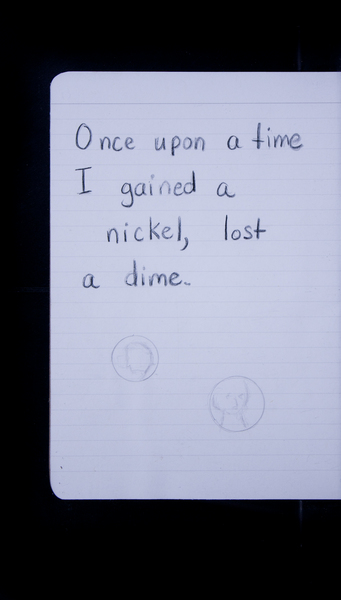 Once upon a time
I gained a
nickel, lost
a dime..